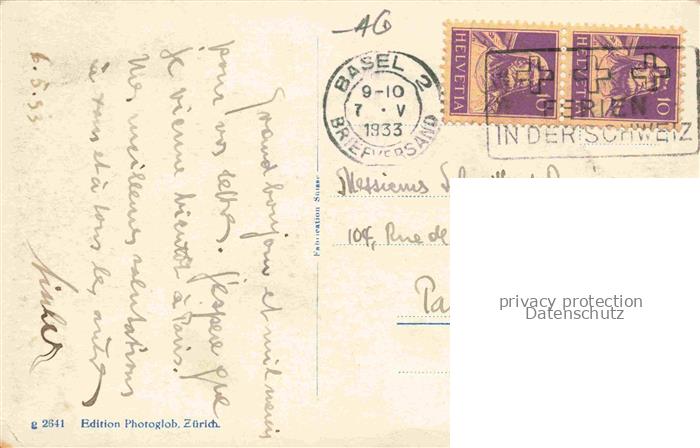 6.5.33
Grand bonjour et mil mercis
pour vos lettres. J'espère que
je vienne bientôt à Paris.
Mes meilleures salutations
à vous et à tous les autres
AG
BASEL 2
9-10
7 · V
1933
BRIEFVERSAND
HELVETIA
10
HELVETIA
10
FERIEN
IN DER SCHWEIZ
Messieurs
104, Rue de
Pa
privacy protection
Datenschutz
Fabrication Suisse
g 2641 Edition Photoglob, Zürich.